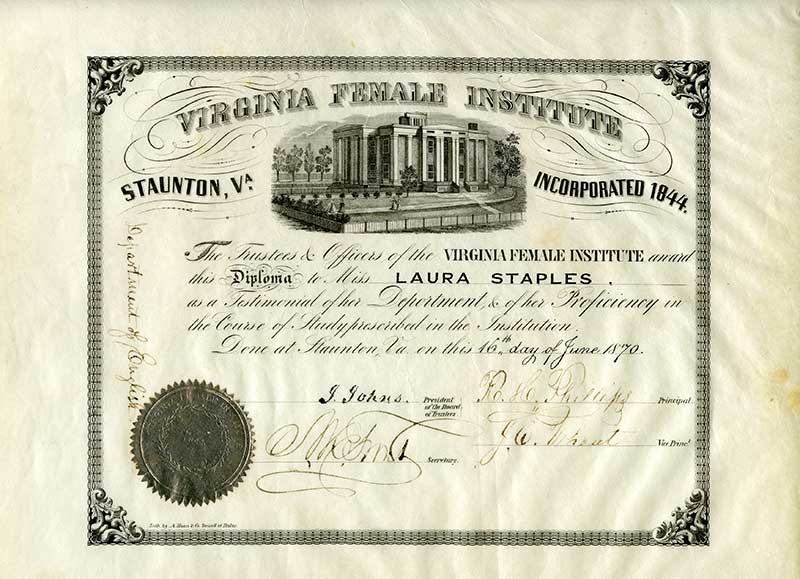 VIRGINIA FEMALE INSTITUTE
STAUNTON, VA.
INCORPORATED 1844.
The Trustees & Officers of the VIRGINIA FEMALE INSTITUTE award
this Diploma to Miss LAURA STAPLES.
as a Testimonial of her Deportment, & of her Proficiency in
the Course of Study prescribed in the Institution.
Done at Staunton, Va. on this 16th day of June 1870.
Department of English
J. Johns. President of the Board of Trustees
R. H. Phillips Principal
Secretary.
Vice Princl.
Lith. by A. Hoen & Co.